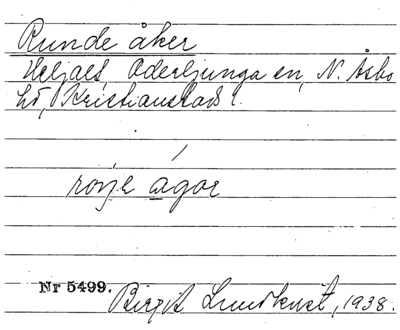 Runde åker
Heljalt, Oderljunga sn, N. Åsbo
hd, Kristianstads l.
ronje agor
Nr 5499.
Birgit Lundkvist, 1938.